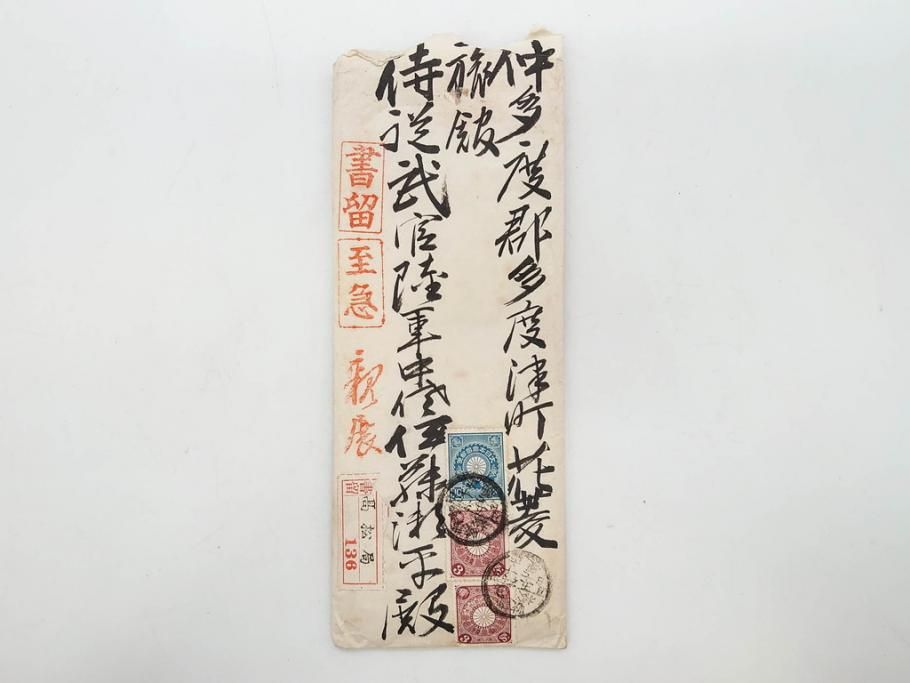 仲多度郡多度津町花菱
旅館
侍従武官陸軍中佐伊藤瀬平殿
書留
至急
親展
書留
高松局
136